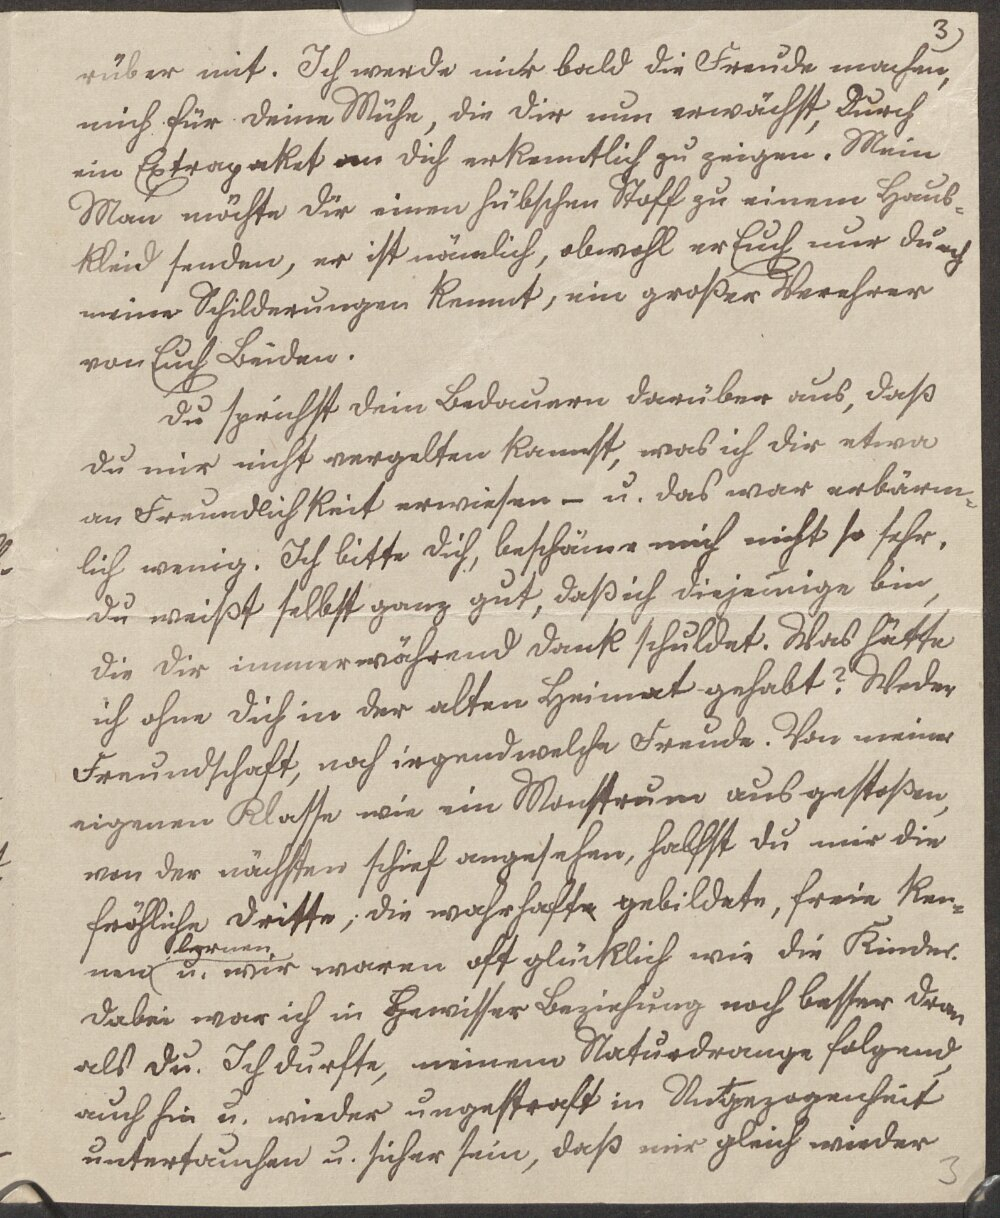 3)
rüber mit. Ich werde mir bald die Freude machen,
mich für Deine Mühe, die Dir nun erwächst, durch
ein Extrapaket an Dich erkenntlich zu zeigen. Mein
Man möchte Dir einen hübschen Stoff zu einem Haus-
kleid senden, er ist nämlich, obwohl er Euch nur durch
meine Schilderungen kennt, ein großer Verehrer
von Euch Beiden.
Du sprichst Dein Bedauern darüber aus, daß
Du mir nicht vergelten kannst, was ich Dir etwa
an Freundlichkeit erwiesen – u. das war erbärm-
lich wenig. Ich bitte Dich, beschäme mich nicht so sehr.
Du weißt selbst ganz gut, daß ich diejenige bin,
die Dir immerwährend Dank schuldet. Was hätte
ich ohne Dich in der alten Heimat gehabt? Weder
Freundschaft, noch irgendwelche Freude. Von meiner
eigenen Klasse wie ein Monstrum ausgestoßen,
von der nächsten schief angesehen, halfst Du mir die
fröhliche Dritte, die wahrhafte gebildete, freie ken-
lernen
nen u. wir waren oft glücklich wie die Kinder.
Dabei war ich in gewisser Beziehung noch besser dran
als Du. Ich durfte, meinem Naturdrange folgend,
auch hin u. wieder ungestraft in Ungezogenheit
untertauchen u. sicher sein, daß mir gleich wieder
3